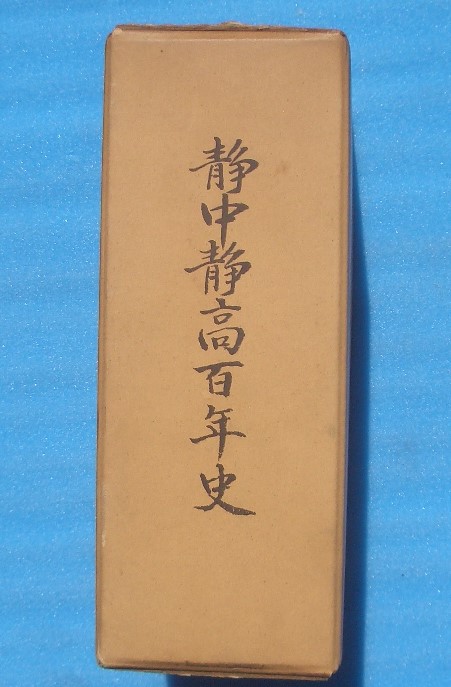 静中静高百年史